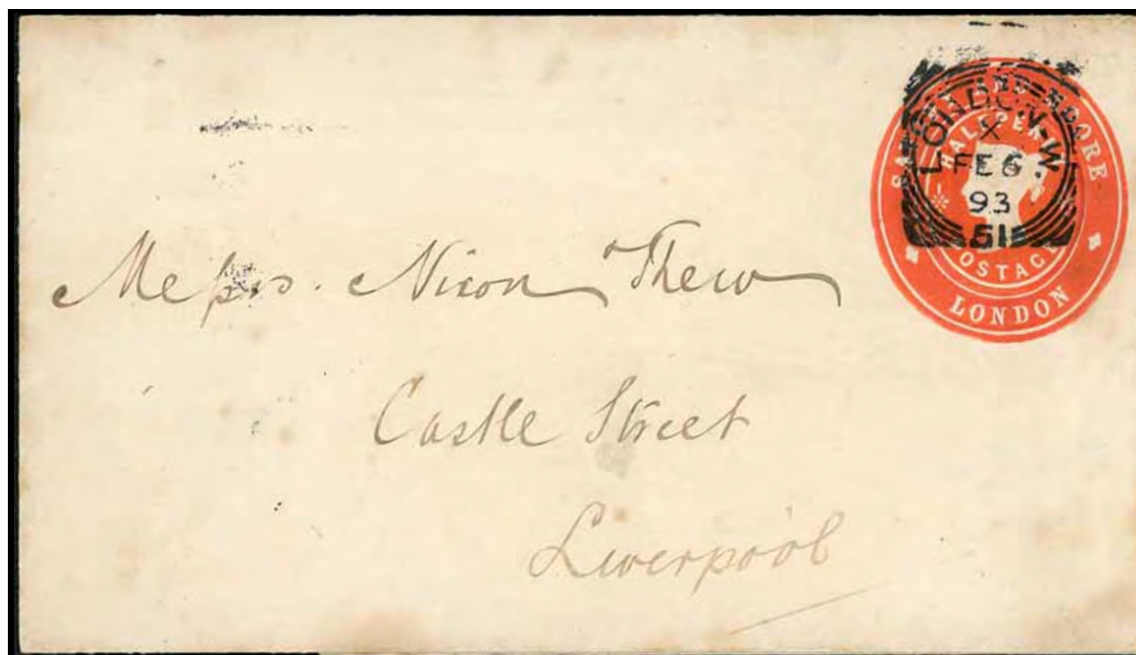 LONDON.W
X
FE 6.
93
51
HALFPENNY
POSTAGE
LONDON
Messrs. Nixon & Thew
Castle Street
Liverpool